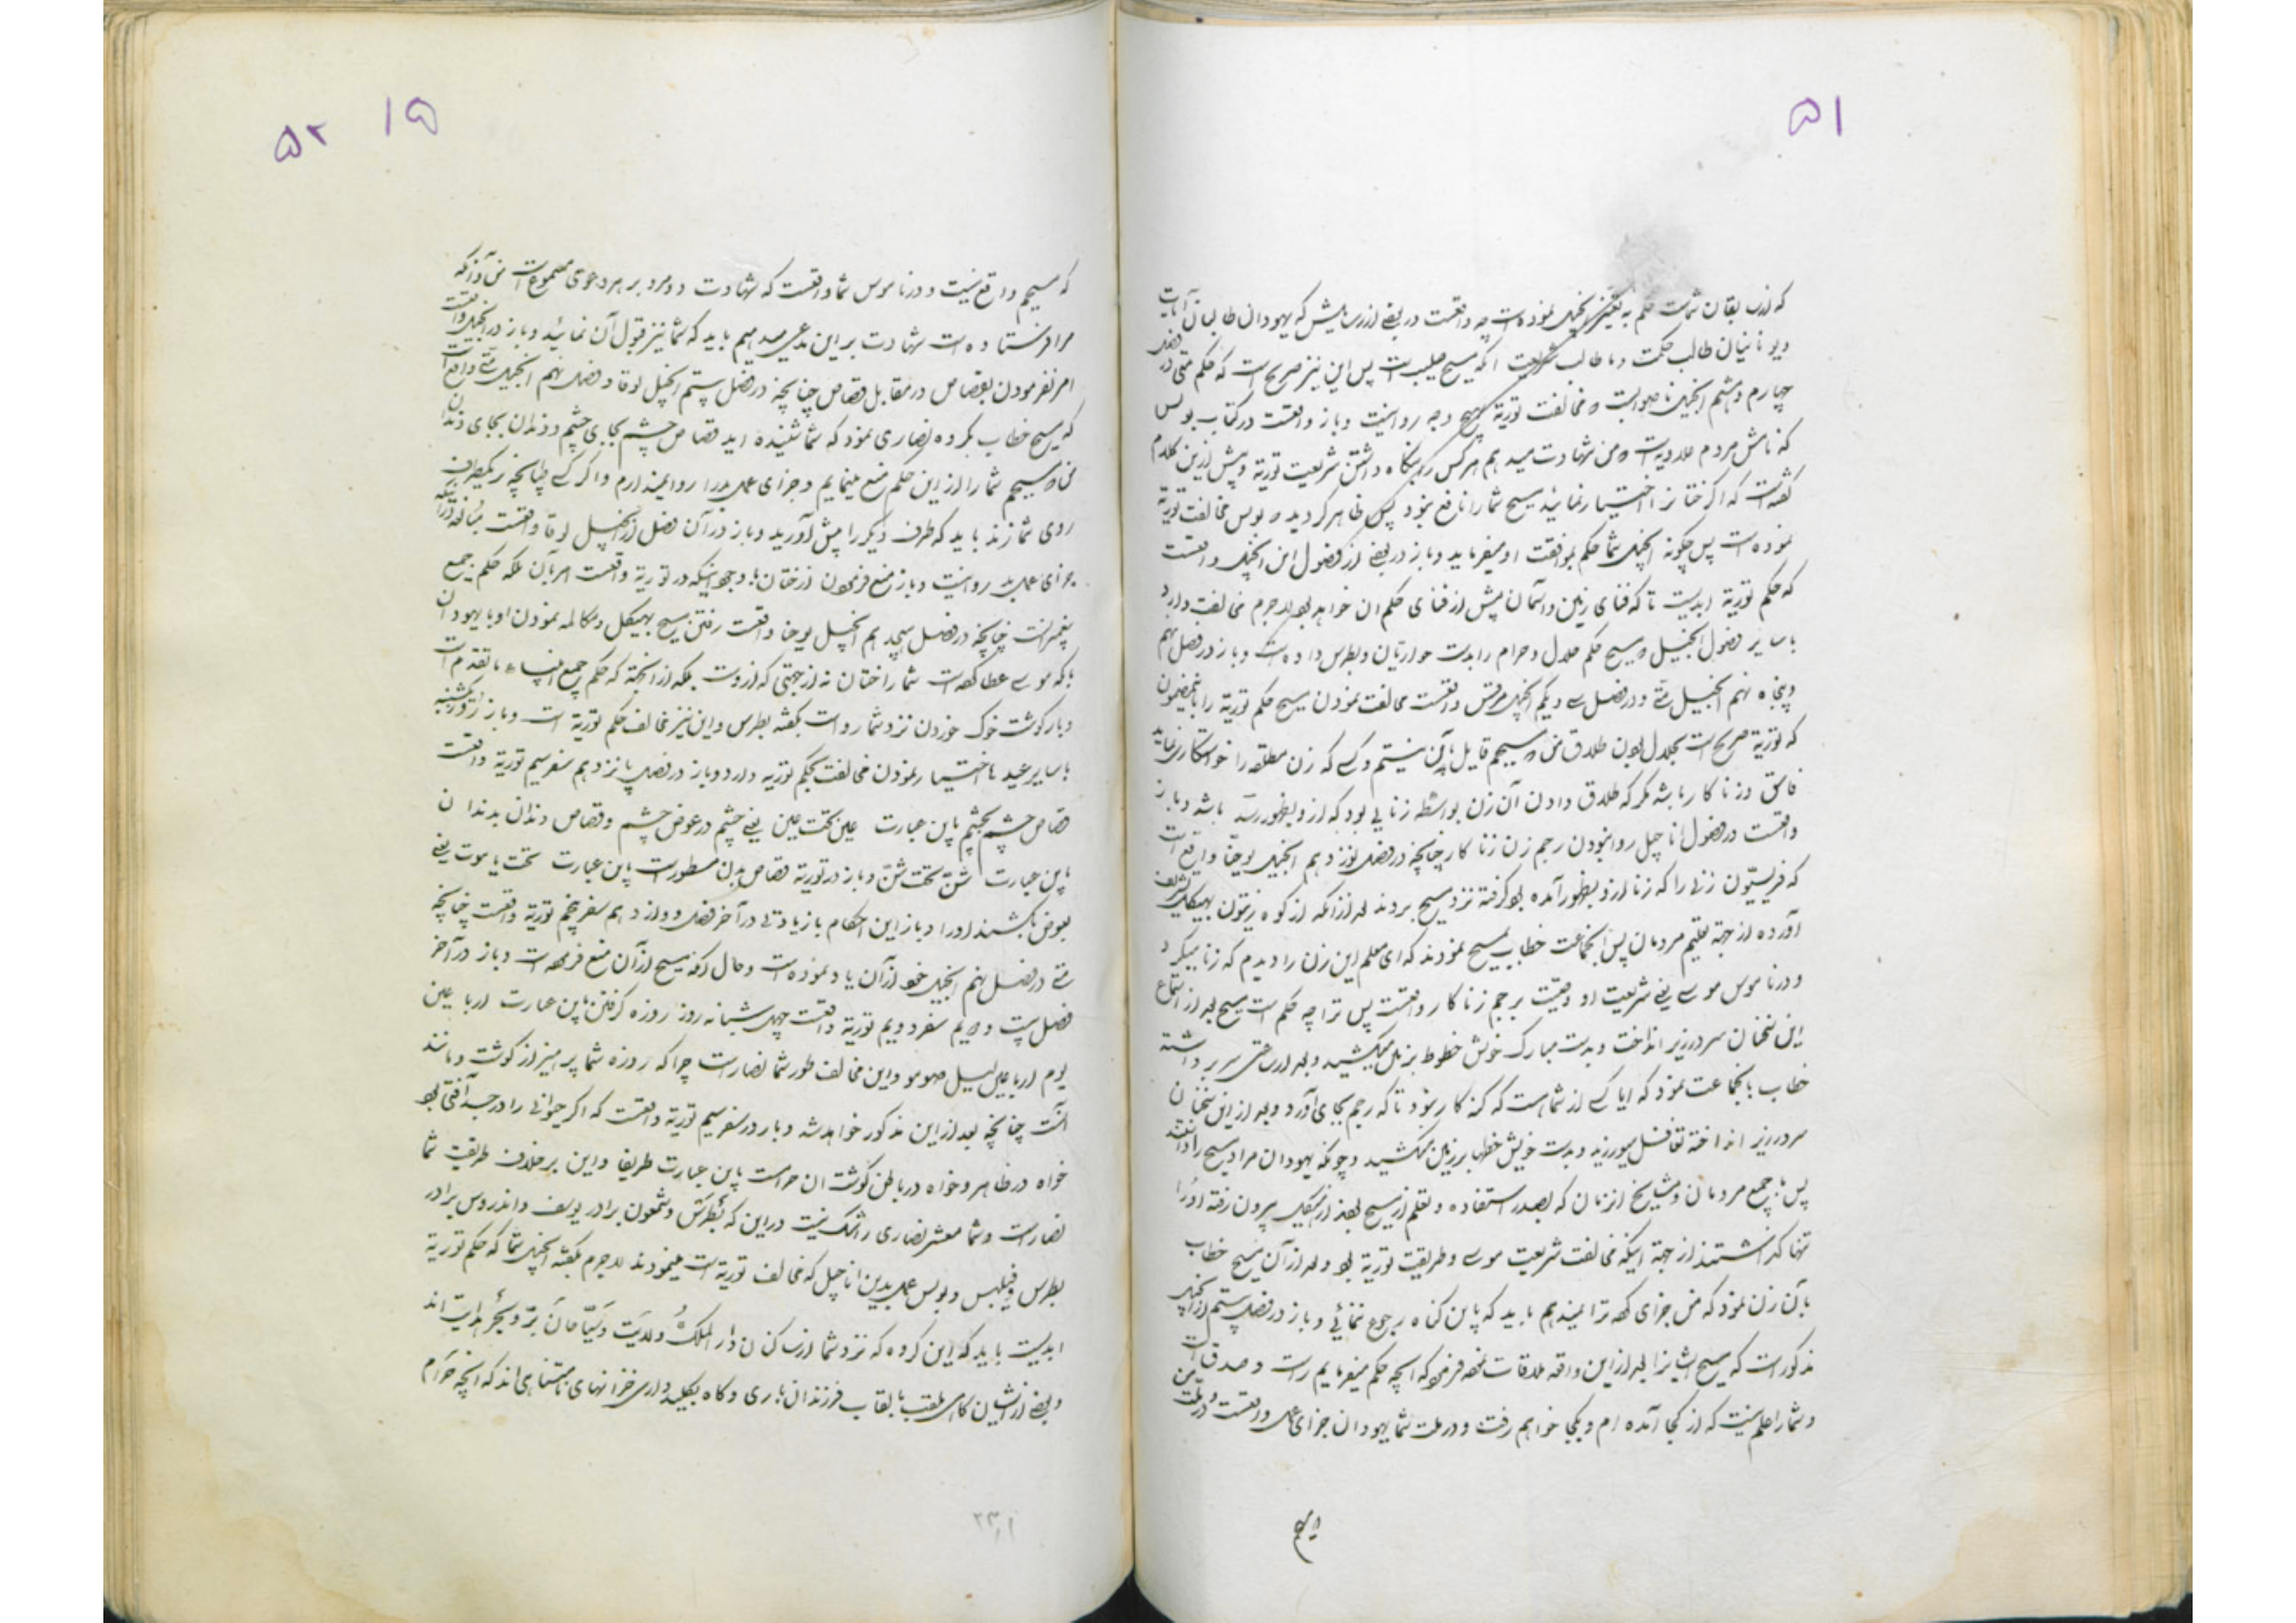 ۵۱
که از سابقان شماست حکم به تغییر انجیل نموده است چه واقعست در بعضی از رسایلش که یهودان طالبان آیات
ویونانیان طالب حکمت وما طالب شریعت آنکه مسیح صلیبست پس این نیز صریح است که حکم متی در فصل
چهارم وهشتم انجیل ناصوابست ومخالفت توریة بهیچ وجه روانیست وباز واقعست در کتاب بولس
که نامش مردم علادیه است ومن شهادت میدهم هر کس را بنگاه داشتن شریعت توریة وپیش ازین کلام
گفته است که اگر ختان اختیار نمائید مسیح شما را نافع نبود پس ظاهر گردید که بولس مخالفت توریة
نموده است پس چگونه انجیل شما حکم بموافقت او میفرماید وباز در بعضی از فصول این انجیل واقعست
که حکم توریة ابدیست تا که فنای زمین وآسمان پیش از فنای حکم ان خواهد بود لاجرم مخالفت دارد
با سایر فصول انجیل ومسیح حکم حلال وحرام را بدست حواریان وبطرس داده است وباز در فصل نهم
وپنجاه نهم انجیل متی ودر فصل سی ویکم انجیل مرقس واقعست مخالفت نمودن مسیح حکم توریة را باینمضمون
که توریة صریح است بحلال بودن طلاق من که مسیحم قایل بآن نیستم وکسی که زن مطلقه را خواستکاری نماید
فاسق وزناکار باشد مگر که طلاق دادن آن زن بواسطه زنایی بود که از وبظهور رسد باشد وباز
واقعست در فصول اناجیل روا نبودن رجم زن زناکار چنانچه در فصل نوزدهم انجیل یوحنا واقع است
که فریسیّون زنی را که زنا ازو بظهور آمده بود گرفته نزد مسیح بردند بعد از آنکه از کوه زیتون بهیکل تشریف
آورده از جهة تعلیم مردمان پس آنجماعت خطاب بمسیح نمودند که ای معلم این زن را دیدیم که زنا میکرد
ودر ناموس موسی یعنی شریعت او واقعست برجم زناکار واقعست پس ترا چه حکم است مسیح بعد از استماع
این سخنان سر در زیر انداخت وبدست مبارک خویش خطوط بر زمین میکشید وبعد از ساعتی سر برداشته
خطاب بآنجماعت نمود که ایا کسی از شما هست که گنه کار نبود تا که رجم بجای آورد وبعد از این سخنان
سر در زیر انداخته تغافل میورزید وبدست خویش خطها بر زمین میکشید وچونکه یهودان مراد مسیح را دانستند
پس با جمع مردمان ومشایخ از زنان که بصدد استفاده وتعلم از مسیح بودند از هیکل بیرون رفته او را
تنها گذاشتند از جهة اینکه مخالفت شریعت موسی وطریقت توریة بود وبعد از آن مسیح خطاب
بآن زن نمود که من جزای گناه ترا نمیدهم باید که باین گناه رجوع ننمائی وباز در فصل بیستم از انجیل
مذکور است که مسیح ایشانرا بعد از این واقعه ملاقات نموده فرمود که آنچه حکم میفرمایم راست وصدقست
وشما را علم نیست که از کجا آمده ام وبکجا خواهم رفت ودر ملت شما یهودان جزای عمل واقعست ودر ملت من
۵۲ ۱۵
که مسیحم واقع نیست ودر ناموس شما واقعست که شهادت دو مرد بر هر دعوی مسموع است من وآنکه
مرا فرستاده است شهادت بر این مدعی میدهیم باید که شما نیز قبول آن نمائید وباز در انجیل واقعست
امر نفرمودن بقصاص در مقابل قصاص چنانچه در فصل بیستم انجیل لوقا وفصل نهم انجیل متی واقع است
که مسیح خطاب بگروه نصاری نمود که شما شنیده اید قصاص چشم بجای چشم ودندان بجای دندان
من که مسیحم شما را از این حکم منع مینمایم وجزای عمل بد را روا نمیدارم واگر کسی طپانچه بر یکطرف
روی شما زند باید که طرف دیگر را پیش آورید وباز در آن فصل از انجیل لوقا واقعست
جزای عمل بد روانیست وباز منع فرمودن از ختان با وجود اینکه در توریة واقعست امر بآن بلکه حکم جمیع
پیغمبرانست چنانچه در فصل هیجدهم انجیل یوحنا واقعست رفتن مسیح بهیکل ومکالمه نمودن او با یهودان
باکه موسی عطا کرده است شما را ختان نه از جهتی که ازوست بلکه از انجهة که حکم جمیع انبیاء ما تقدم است
وباز گوشت خوک خوردن نزد شما رواست بگفته بطرس واین نیز مخالف حکم توریة است وباز روز یکشنبه
با سایر عید ها اختیار نمودن مخالفت بحکم توریة دارد وباز در فصل پانزدهم سفر سیم توریة واقعست
قصاص چشم بچشم باین عبارت عین تحت عین یعنی چشم در عوض چشم وقصاص دندان بدندان
باین عبارت شنّ تحت شنّ وباز در توریة قصاص بدن مسطور است باین عبارت تحت یا موت یعنی
بعوض بکشند او را وباز این احکام با زیادتی در آخر فصل دوازدهم سفر پنجم توریة واقعست چنانچه
متی در فصل نهم انجیل خود از آن یاد نموده است وحال آنکه مسیح از آن منع فرموده است وباز در آخر
فصل بیست ودویم سفر دویم توریة واقعست چهل شبانه روز روزه گرفتن باین عبارت اربا عین
یوم اربا عین لیل صومو واین مخالف طور شما نصاراست چرا که روزه شما پرهیز از گوشت ومانند
آنست چنانچه بعد از این مذکور خواهد شد وباز در سفر سیم توریة واقعست که اگر حیوانی را در جسد آفتی بود
خواه در ظاهر وخواه در باطن گوشت ان حرامست باین عبارت طریفا واین بر خلاف طریقت شما
نصاراست وشما معشر نصاری را شک نیست در این که بُطرُسْ وشمعون برادر یوسف واندروس برادر
بطرس وفیلبس وبولس عمل بدین اناجیل که مخالف توریة است مینمودند لاجرم بگفته انجیل شما که حکم توریة
ابدیست باید که این گروه که نزد شما از ساکنان دار الملک ولایت وسیّاحان برّ وبحر هدایت اند
وبعضی از ایشان کاهی ملقب بالقاب فرزندان باری وگاه بکلید داری خزانهای نامتناهی اند که آنچه حرام